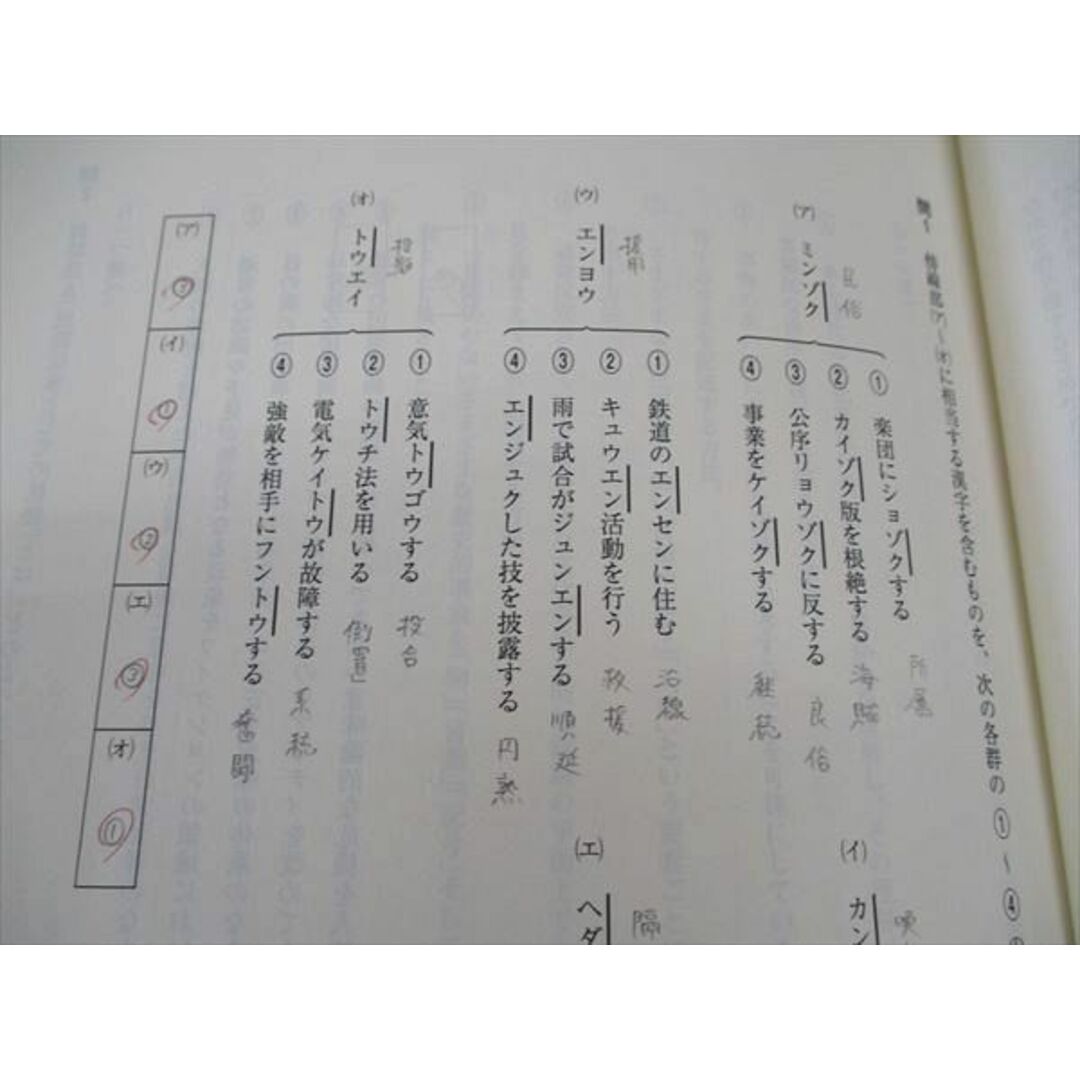 問1 傍線部(ア)～(オ)に相当する漢字を含むものを、次の各群の①～④の
(ア) ミンゾク
民俗
① 楽団にショゾクする 所属
② カイゾク版を根絶する 海賊
③ 公序リョウゾクに反する 良俗
④ 事業をケイゾクする 継続
(イ) カン
喚
(ウ) エンヨウ
援用
① 鉄道のエンセンに住む 沿線
② キュウエン活動を行う 救援
③ 雨で試合がジュンエンする 順延
④ エンジュクした技を披露する 円熟
(エ) ヘダ
隔
(オ) トウエイ
投影
① 意気トウゴウする 投合
② トウチ法を用いる 倒置
③ 電気ケイトウが故障する 系統
④ 強敵を相手にフントウする 奮闘
(ア) ③
(イ) ①
(ウ) ②
(エ) ③
(オ) ①